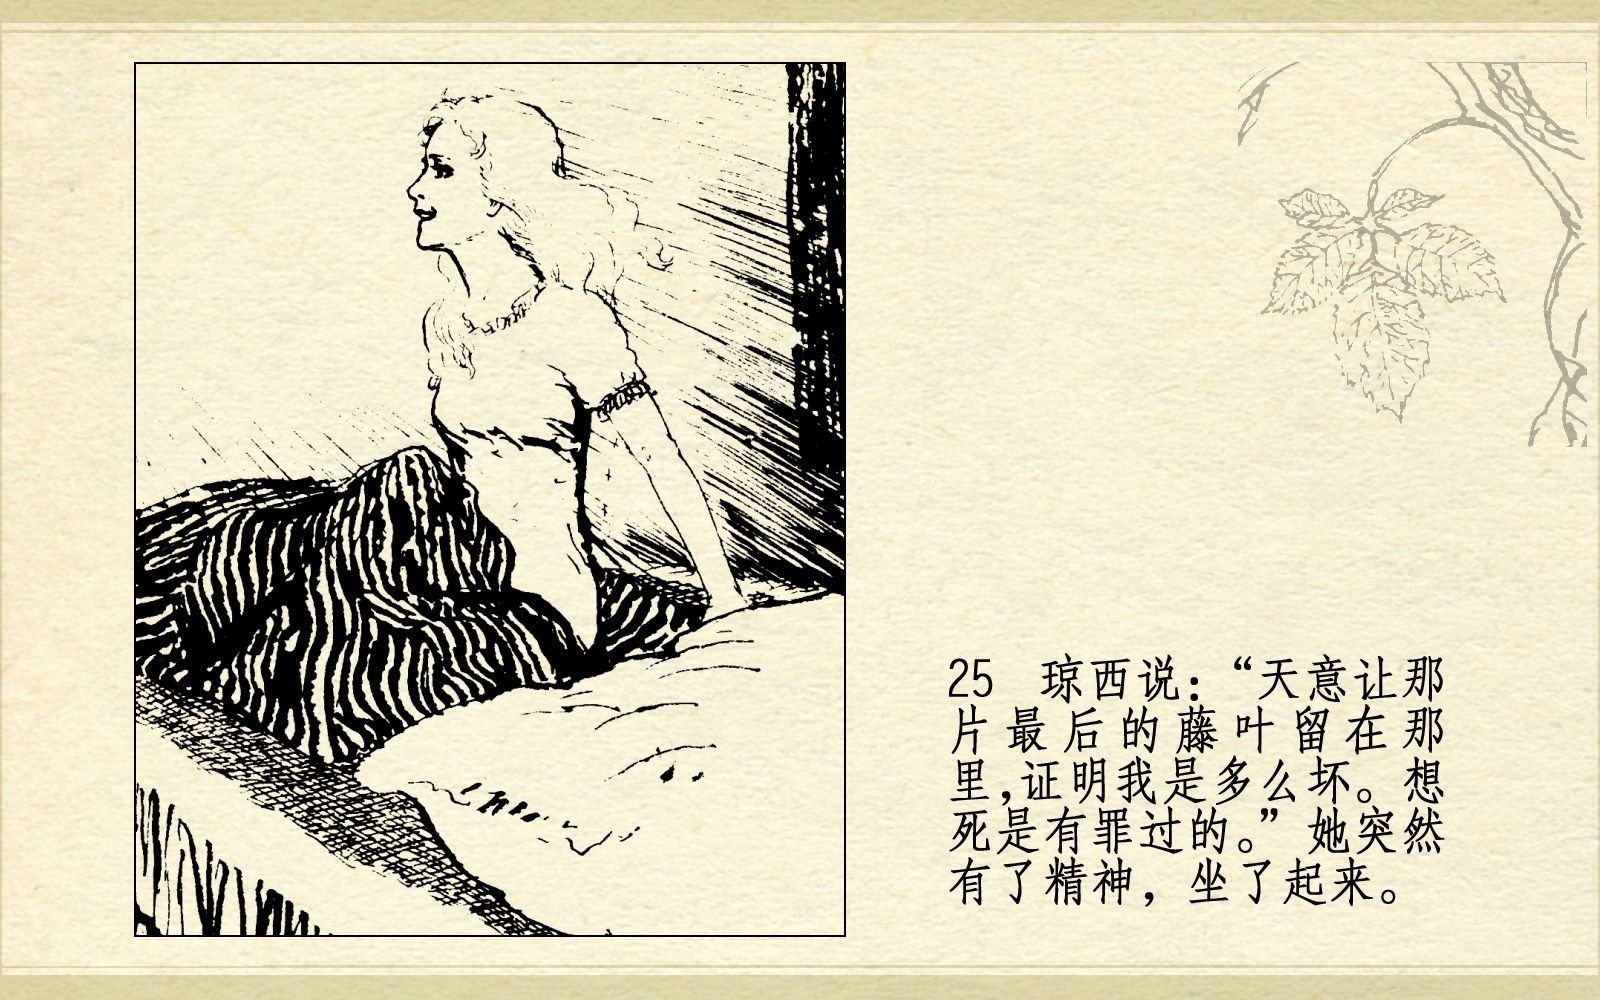 25 琼西说：“天意让那
片最后的藤叶留在那
里，证明我是多么坏。想
死是有罪过的。”她突然
有了精神，坐了起来。